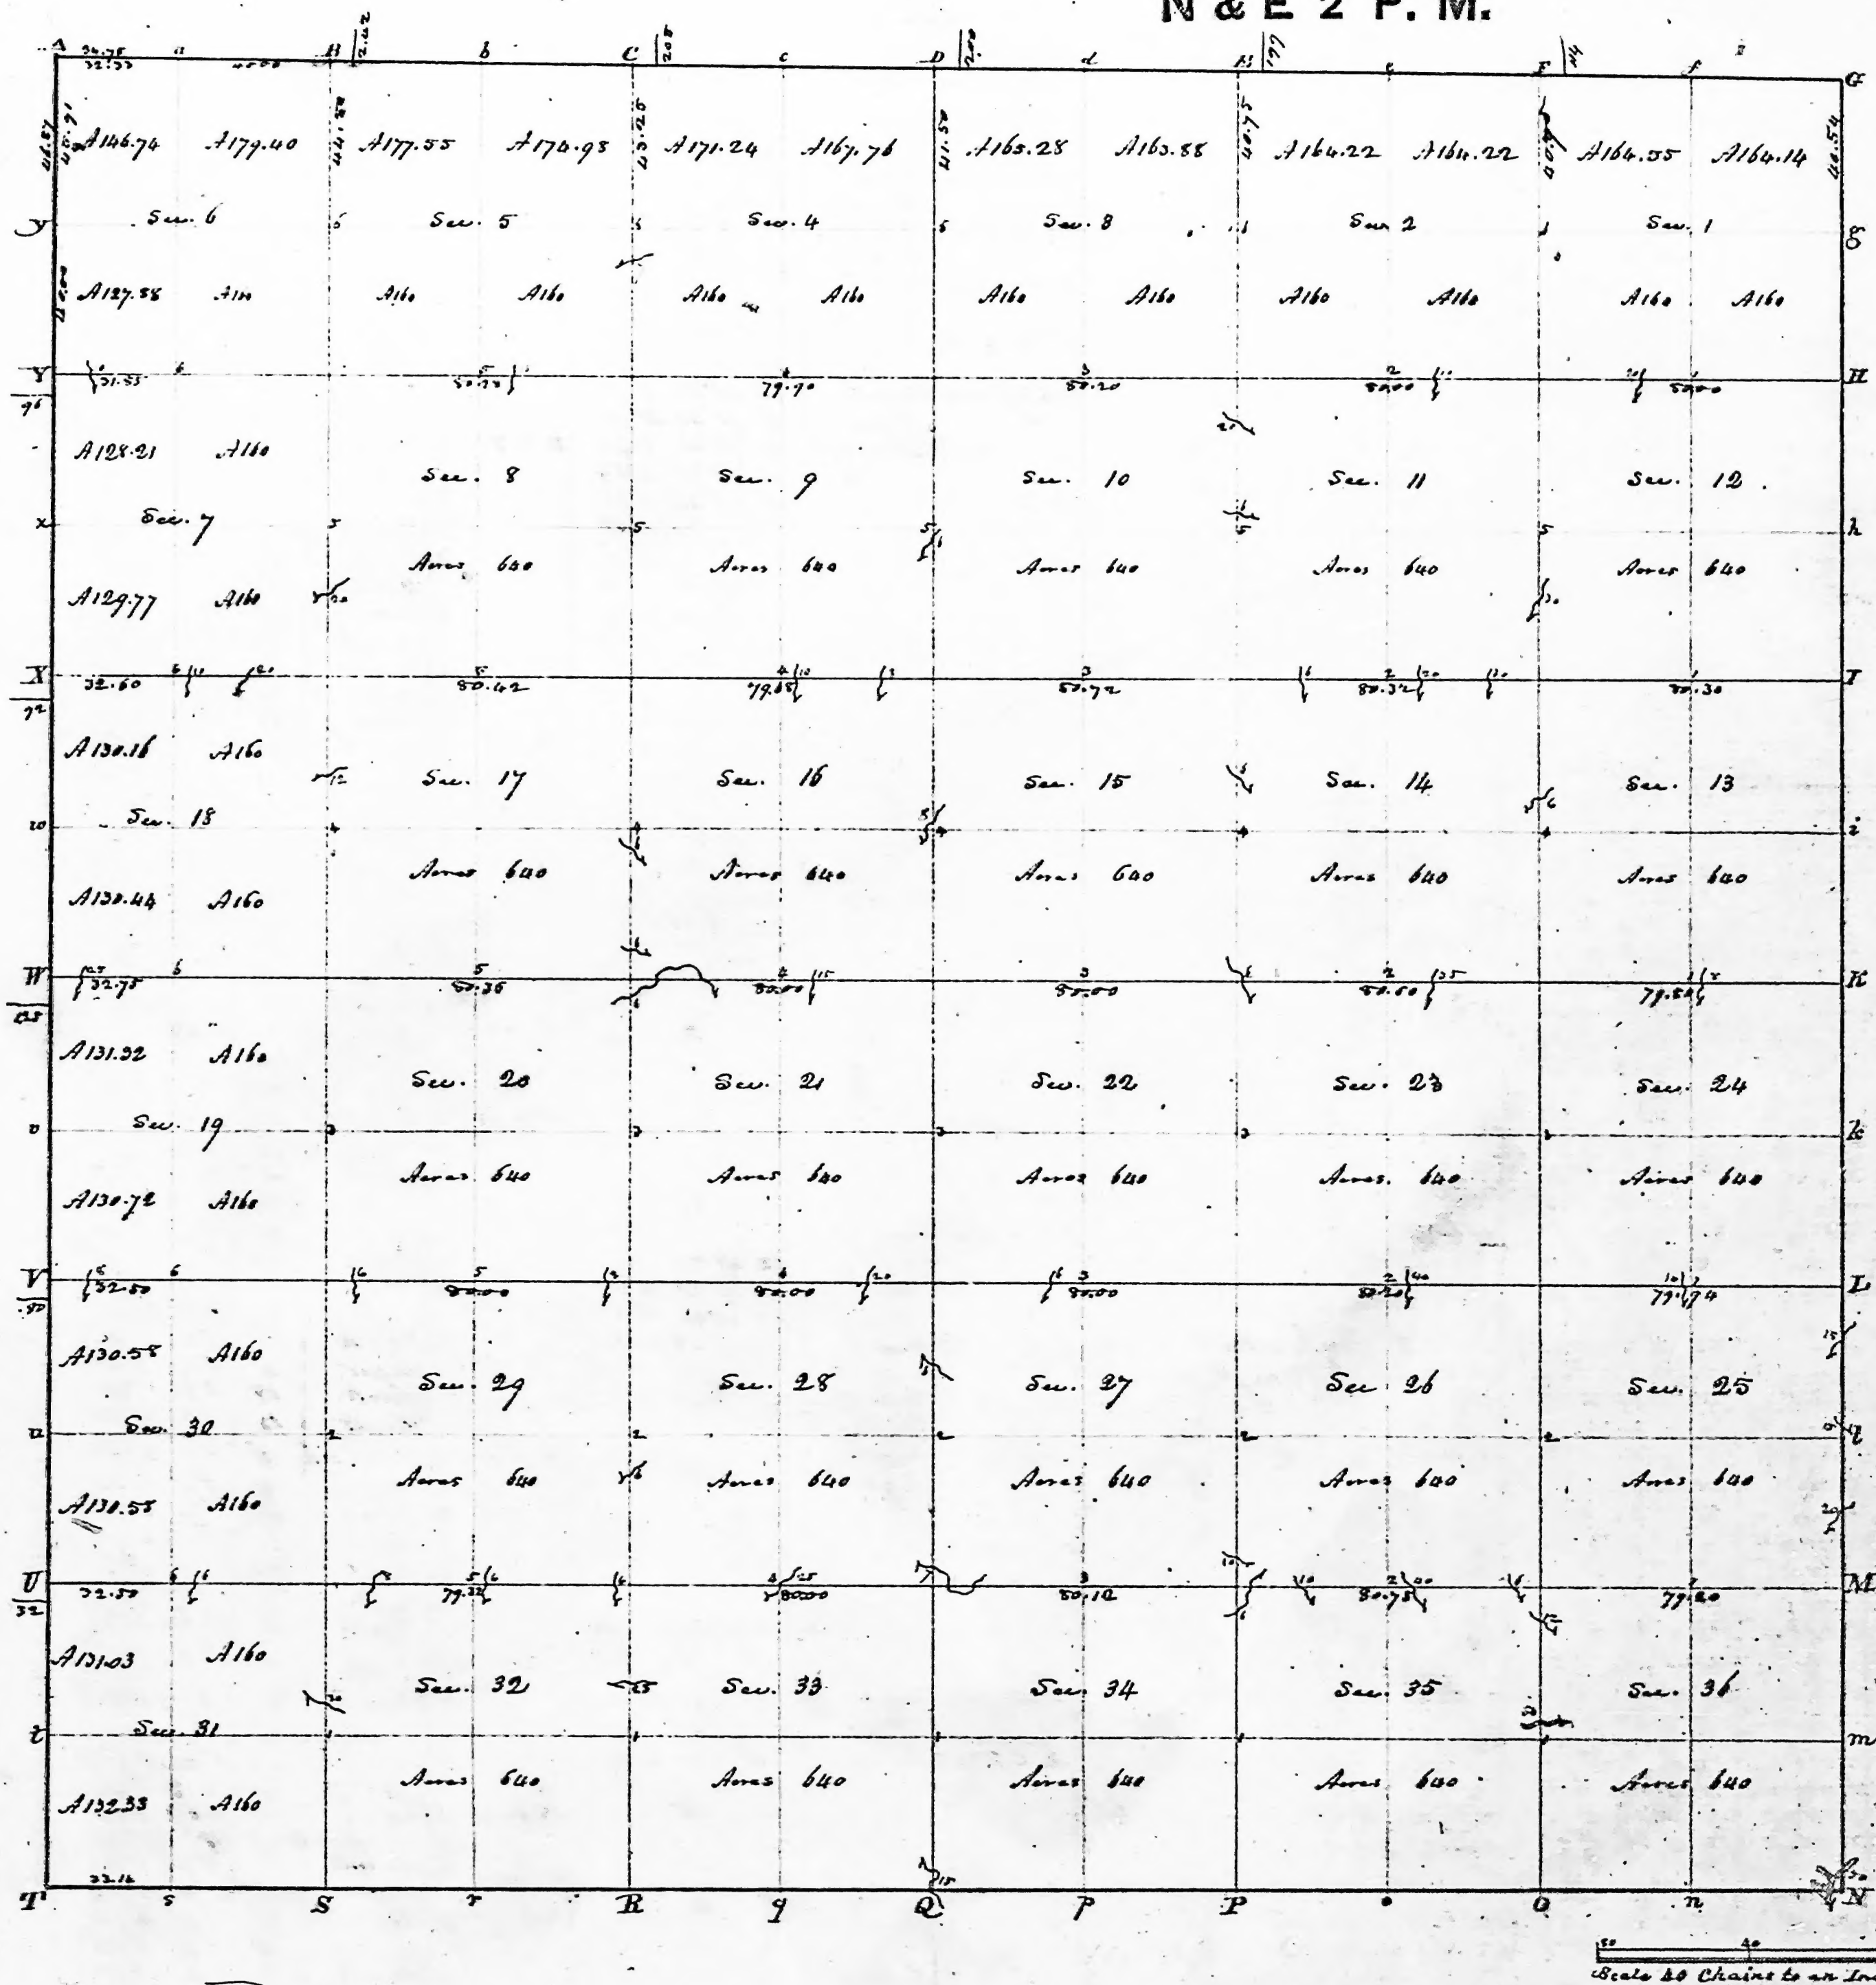 N & E 2 P. M.
A a B b C c D d E e F f G
2.05 2.00 1.97
A146.74 A179.40 44.50 A177.55 A174.95 43.25 A171.24 A167.76 41.50 A165.28 A163.88 40.75 A164.22 A164.22 A164.55 A164.14 40.54
y Sec. 6 5 Sec. 5 Sec. 4 5 Sec. 3 Sec 2 Sec. 1 g
A127.58 A160 A160 A160 A160 A160 A160 A160 A160 A160 A160
Y 6 5 79.90 3 80.20 2 80.00 80.00 H
96
A128.21 A160
Sec. 8 Sec. 9 Sec. 10 Sec. 11 Sec. 12
x Sec. 7 5 5 5 5 5 h
Acres 640 Acres 640 Acres 640 Acres 640 Acres 640
A129.77 A160
X 32.60 6 5 80.42 4 3 80.72 2 80.32 80.30 I
92
A130.16 A160
Sec. 17 Sec. 16 Sec. 15 Sec. 14 Sec. 13
w Sec. 18 4 4 4 4 4 i
Acres 640 Acres 640 Acres 640 Acres 640 Acres 640
A130.44 A160
W 32.75 6 5 80.36 4 80.00 15 3 80.00 2 80.60 79.50 K
A131.32 A160
Sec. 20 Sec. 21 Sec. 22 Sec. 23 Sec. 24
v Sec. 19 3 3 3 3 3 k
Acres 640 Acres 640 Acres 640 Acres 640 Acres 640
A130.72 A160
V 32.50 6 5 80.00 80.00 20 3 80.00 2 80.20 40 79.74 L
80
A130.58 A160
Sec. 29 Sec. 28 Sec. 27 Sec 26 Sec. 25
u Sec. 30 2 2 2 2 2
Acres 640 Acres 640 Acres 640 Acres 640 Acres 640
A130.55 A160
U 32.50 6 5 79.32 80.00 3 80.12 2 80.75 79.20 M
32
A131.03 A160
Sec. 32 Sec. 33 Sec. 34 Sec. 35 Sec. 36
t Sec. 31 1 1 1 1 1 m
Acres 640 Acres 640 Acres 640 Acres 640 Acres 640
A132.33 A160
T s S r R q Q p P o O n N
50 40
Scale 40 Chains to an